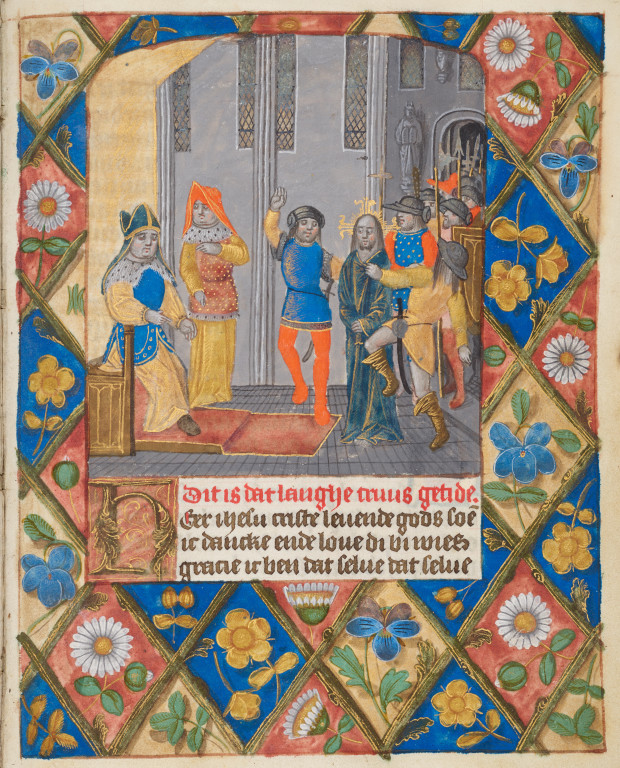 Dit is dat langhe cruus getide.
Heer ihesu criste leuende gods soē
ic dancke ende loue di bi wies
gracie ic ben dat selue dat selue